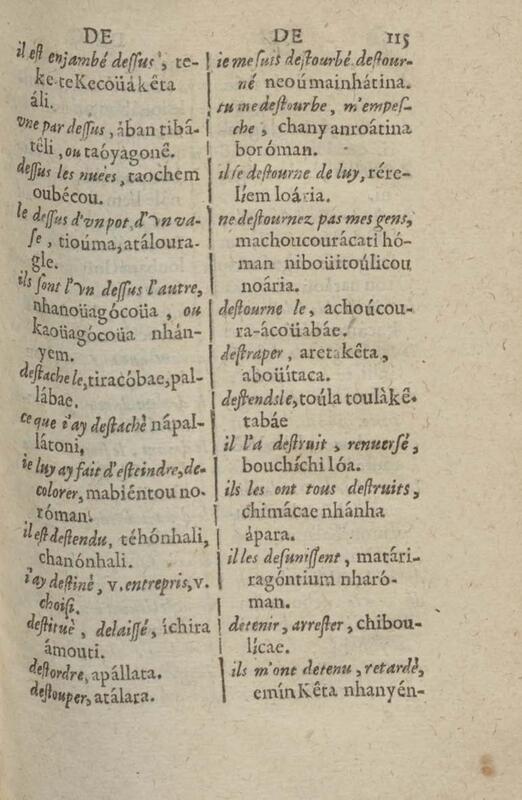 DE
DE 115
il est enjambé dessus, te-
ke-teKecoüákêta
áli.
vne par dessus, ában tibá-
têli, ou taóyagonê.
dessus les nuées, taochem
oubécou.
le dessus d'vn pot, d'vn va-
se, tioúma, atáloura-
gle.
ils sont l'vn dessus l'autre,
nhanoüagócoüa, ou
kaoüagócoüa nhán-
yem.
destache le, tiracóbae, pal-
lábae.
ce que i'ay destachè nápal-
látoni,
ie luy ay fait d'esteindre, de-
colorer, mabiéntou no-
róman.
il est destendu, téhónhali,
chanónhali.
i'ay destinè, v. entrepris, v.
choisi.
destituè, delaissé, íchira
ámouti.
destordre, apállata.
destouper, atálara.
ie me suis destourbé. destour-
né neoúmainhátina.
tu me destourbe, m'empes-
che, chany anroátina
boróman.
il se destourne de luy, rére-
líem loária.
ne destournez pas mes gens,
machoucourácati hó-
man niboüitoúlicou
noária.
destourne le, achoúcou-
ra-ácoüabáe.
destraper, aretakêta,
aboüítaca.
destendsle, toúla toulàkê-
tabáe
il l'a destruit, renuersé,
bouchíchi lóa.
ils les ont tous destruits,
chimácae nhánha
ápara.
il les desunissent, matári-
ragóntium nharó-
man.
detenir, arrester, chibou-
lícae.
ils m'ont detenu, retardè,
emínKêta nhanyén-